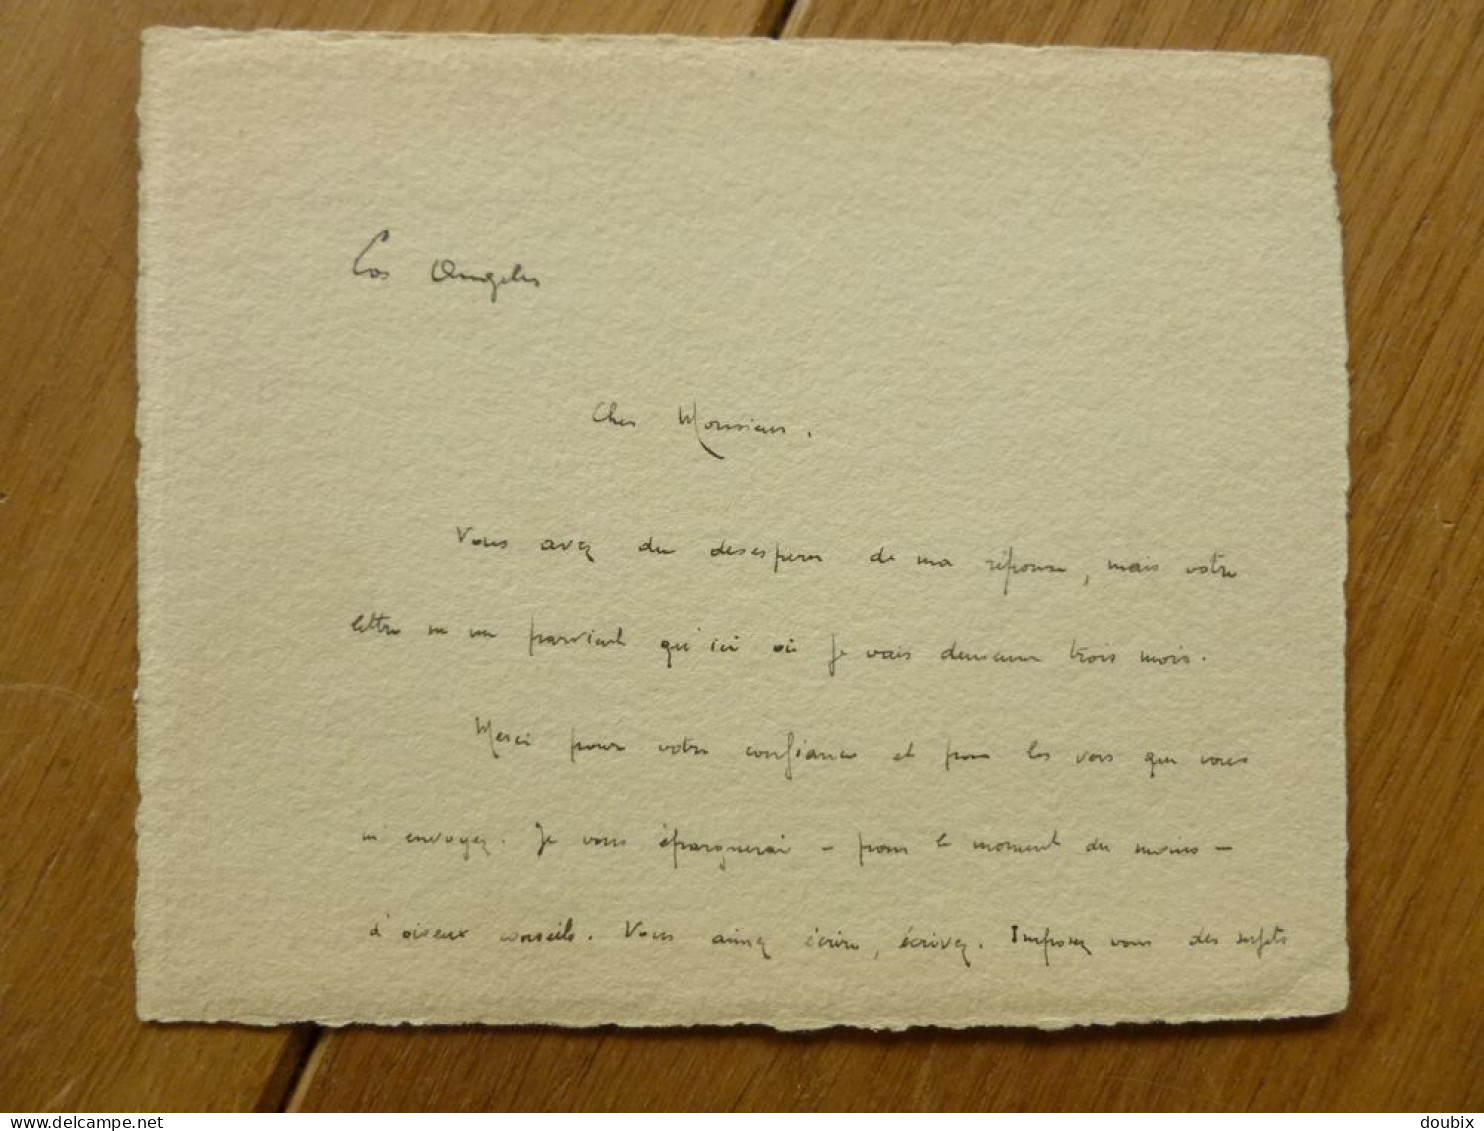 Los Angeles
Cher Monsieur.
Vous avez du desesperer de ma réponse, mais votre
lettre ne me parvient qu'ici où je vais demeurer trois mois.
Merci pour votre confiance et pour les vers que vous
m'envoyez. Je vous épargnerai – pour le moment du moins –
d'oiseux conseils. Vous aimez écrire, écrivez. Imposez vous des sujets
www.delcampe.net
doubix